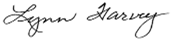 Lynn Harvey